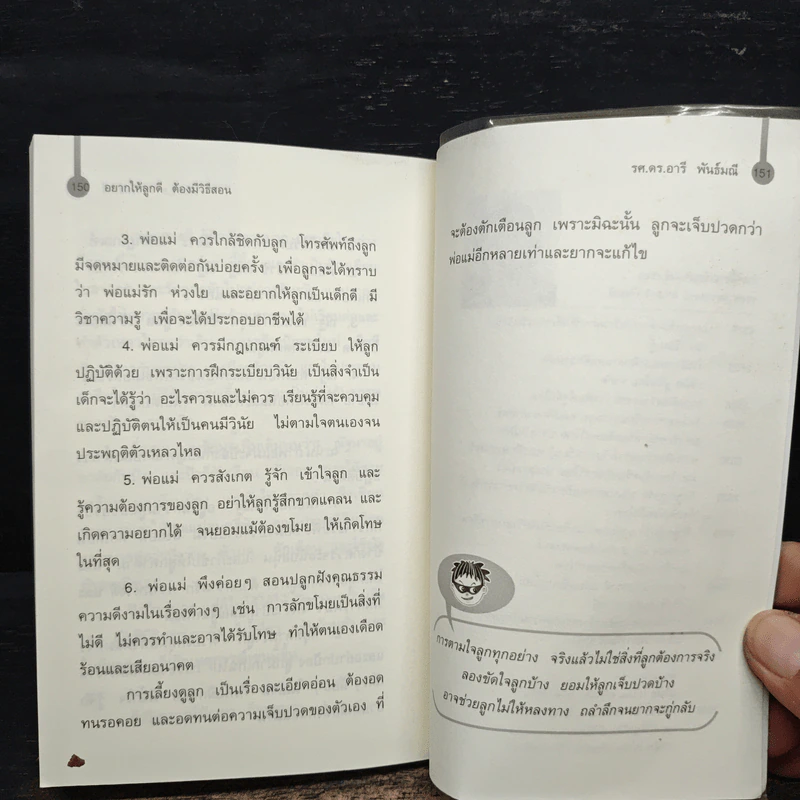 150 อยากให้ลูกดี ต้องมีวิธีสอน
3. พ่อแม่ ควรใกล้ชิดกับลูก โทรศัพท์ถึงลูก
มีจดหมายและติดต่อกันบ่อยครั้ง เพื่อลูกจะได้ทราบ
ว่า พ่อแม่รัก ห่วงใย และอยากให้ลูกเป็นเด็กดี มี
วิชาความรู้ เพื่อจะได้ประกอบอาชีพได้
4. พ่อแม่ ควรมีกฎเกณฑ์ ระเบียบ ให้ลูก
ปฏิบัติด้วย เพราะการฝึกระเบียบวินัย เป็นสิ่งจำเป็น
เด็กจะได้รู้ว่า อะไรควรและไม่ควร เรียนรู้ที่จะควบคุม
และปฏิบัติตนให้เป็นคนมีวินัย ไม่ตามใจตนเองจน
ประพฤติตัวเหลวไหล
5. พ่อแม่ ควรสังเกต รู้จัก เข้าใจลูก และ
รู้ความต้องการของลูก อย่าให้ลูกรู้สึกขาดแคลน และ
เกิดความอยากได้ จนยอมแม้ต้องขโมย ให้เกิดโทษ
ในที่สุด
6. พ่อแม่ พึงค่อยๆ สอนปลูกฝังคุณธรรม
ความดีงามในเรื่องต่างๆ เช่น การลักขโมยเป็นสิ่งที่
ไม่ดี ไม่ควรทำและอาจได้รับโทษ ทำให้ตนเองเดือด
ร้อนและเสียอนาคต
การเลี้ยงดูลูก เป็นเรื่องละเอียดอ่อน ต้องอด
ทนรอคอย และอดทนต่อความเจ็บปวดของตัวเอง ที่
รศ.ดร.อารี พันธ์มณี 151
จะต้องตักเตือนลูก เพราะมิฉะนั้น ลูกจะเจ็บปวดกว่า
พ่อแม่อีกหลายเท่าและยากจะแก้ไข
การตามใจลูกทุกอย่าง จริงแล้วไม่ใช่สิ่งที่ลูกต้องการจริง
ลองขัดใจลูกบ้าง ยอมให้ลูกเจ็บปวดบ้าง
อาจช่วยลูกไม่ให้หลงทาง ถลำลึกจนยากจะกู่กลับ